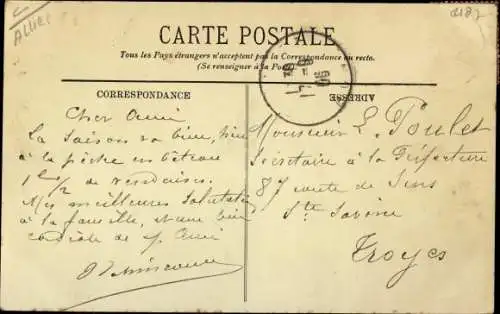 Allier
2187
CARTE POSTALE
Tous les Pays étrangers n'acceptent pas la Correspondance au recto.
(Se renseigner à la Poste)
CORRESPONDANCE
ADRESSE
Cher Ami
La saison va bien, bien
à la pêche en bateau
1 1/2 de
Mes meilleures salutations
à la famille, et une bien
cordiale de f. Ami
Monsieur L. Poulet
Secrétaire à la Préfecture
87 route de Sens
Ste Savine
Troyes